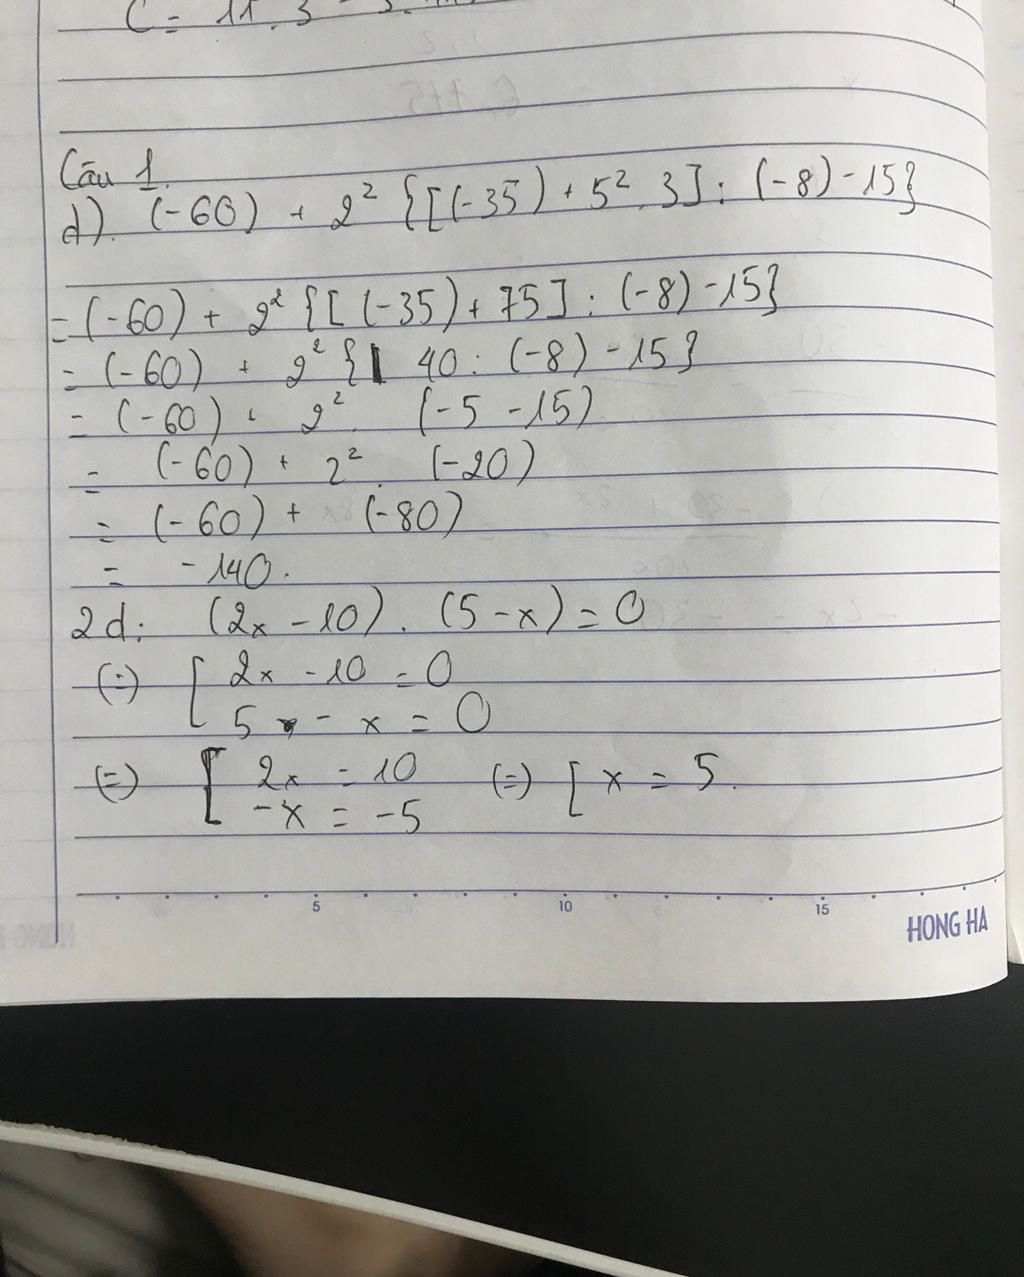 C = 11 . 3
Câu 1.
d). (-60) + 2² {[(-35) + 5² . 3] : (-8) - 15}
= (-60) + 2² {[(-35) + 75] : (-8) - 15}
= (-60) + 2² { 40 : (-8) - 15}
= (-60) + 2² . (-5 - 15)
= (-60) + 2² . (-20)
= (-60) + (-80)
= -140.
2d: (2x - 10) . (5 - x) = 0
(=) [ 2x - 10 = 0
5 - x = 0
(=) [ 2x = 10 (=) [ x = 5.
-x = -5
5 10 15
HONG HA